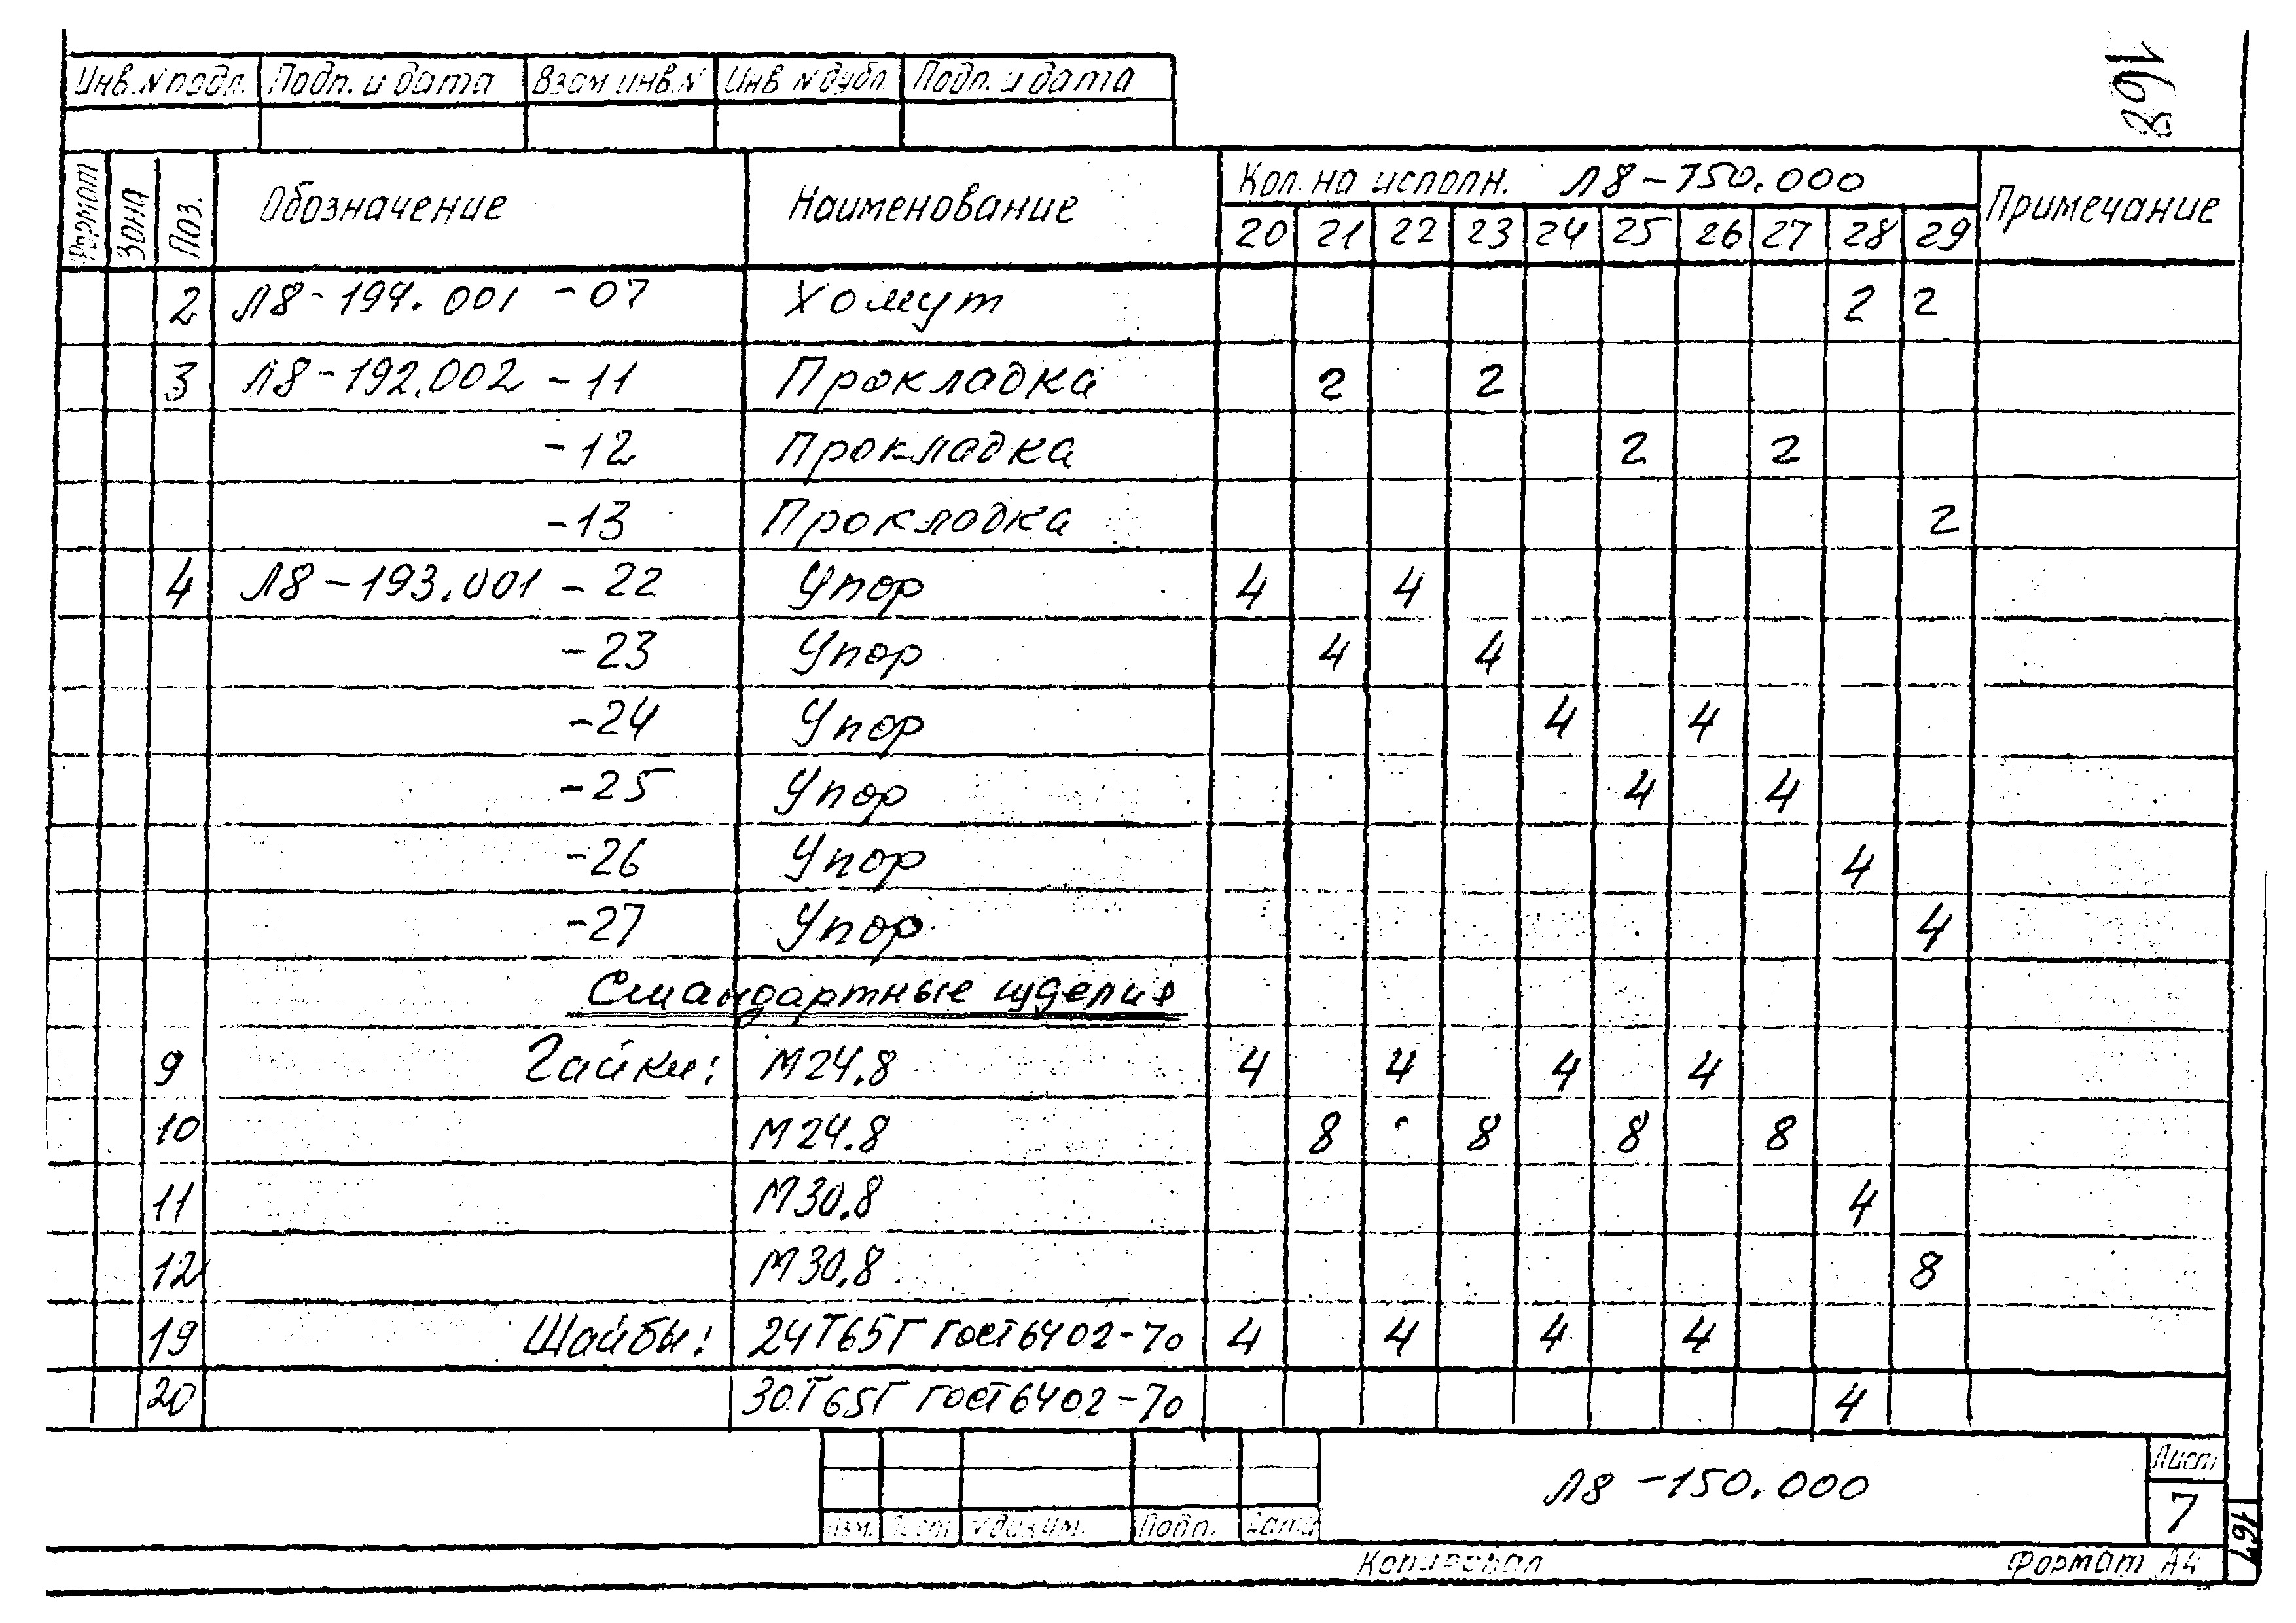 168
Инв. N подл. Подп. и дата Взам инв. N Инв N дубл. Подп. и дата
Формат Зона Поз. Обозначение Наименование Кол. на исполн. Л8-150.000 Примечание
20 21 22 23 24 25 26 27 28 29
2 Л8-194.001 -07 Хомут 2 2
3 Л8-192.002 -11 Прокладка 2 2
-12 Прокладка 2 2
-13 Прокладка 2
4 Л8-193.001 -22 Упор 4 4
-23 Упор 4 4
-24 Упор 4 4
-25 Упор 4 4
-26 Упор 4
-27 Упор 4
Стандартные изделия
9 Гайки: М24.8 4 4 4 4
10 М24.8 8 8 8 8
11 М30.8 4
12 М30.8 8
19 Шайбы: 24Т65Г ГОСТ 6402-70 4 4 4 4
20 30Т65Г ГОСТ 6402-70 4
Л8-150.000
Лист
7
Изм. Лист №докум. Подп. Дата
Копировал Формат А4
167